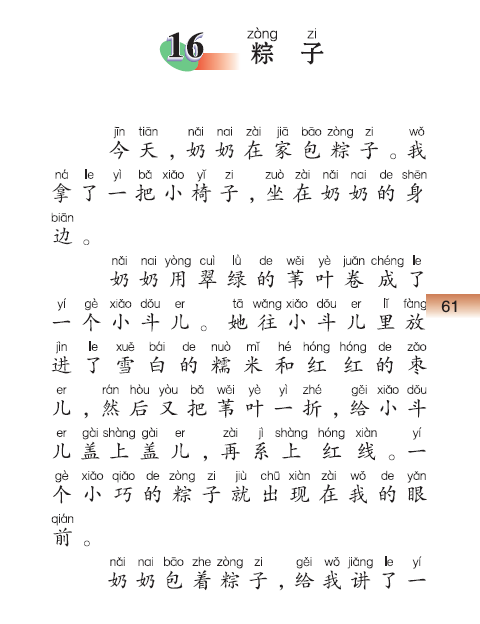 zòng zi
16 粽 子
jīn tiān nǎi nai zài jiā bāo zòng zi wǒ
今 天 ，奶 奶 在 家 包 粽 子 。我
ná le yì bǎ xiǎo yǐ zi zuò zài nǎi nai de shēn
拿 了 一 把 小 椅 子 ，坐 在 奶 奶 的 身
biān
边 。
nǎi nai yòng cuì lǜ de wěi yè juǎn chéng le
奶 奶 用 翠 绿 的 苇 叶 卷 成 了
yí gè xiǎo dǒu er tā wǎng xiǎo dǒu er lǐ fàng
一 个 小 斗 儿 。 她 往 小 斗 儿 里 放
61
jìn le xuě bái de nuò mǐ hé hóng hóng de zǎo
进 了 雪 白 的 糯 米 和 红 红 的 枣
er rán hòu yòu bǎ wěi yè yì zhé gěi xiǎo dǒu
儿 ，然 后 又 把 苇 叶 一 折 ，给 小 斗
er gài shàng gài er zài jì shàng hóng xiàn yí
儿 盖 上 盖 儿 ，再 系 上 红 线 。一
gè xiǎo qiǎo de zòng zi jiù chū xiàn zài wǒ de yǎn
个 小 巧 的 粽 子 就 出 现 在 我 的 眼
qián
前 。
nǎi nai bāo zhe zòng zi gěi wǒ jiǎng le yí
奶 奶 包 着 粽 子 ，给 我 讲 了 一